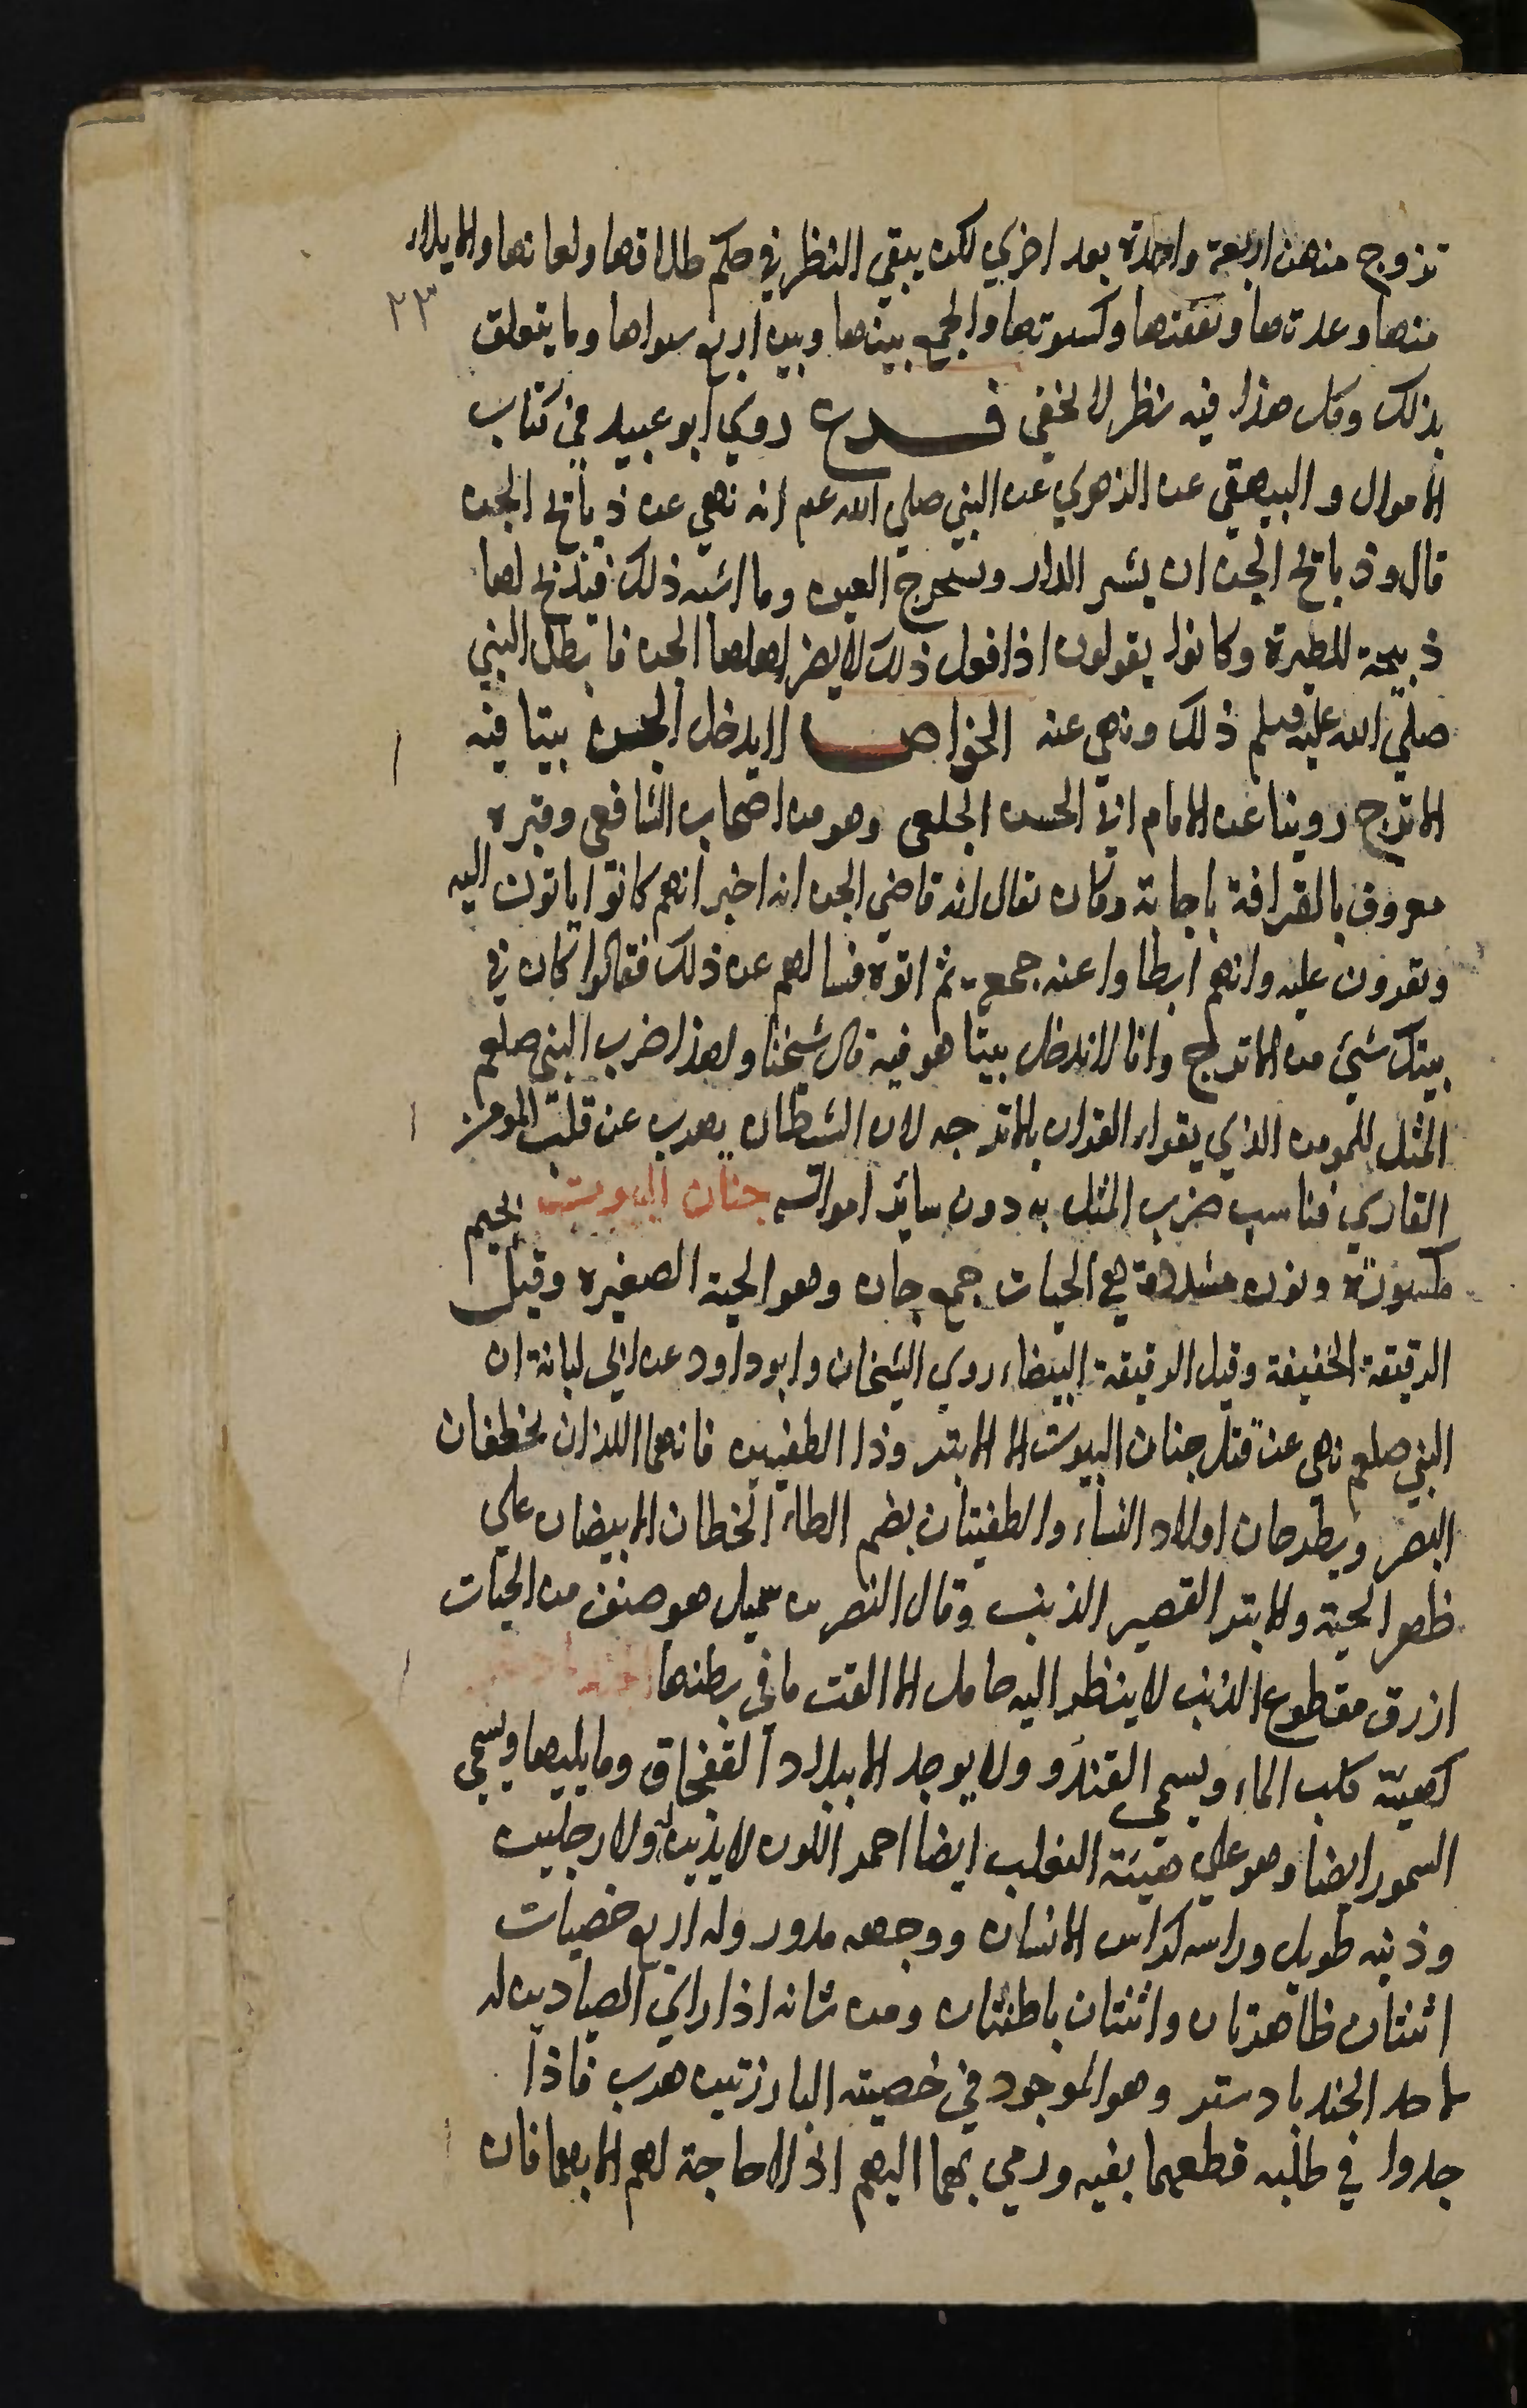 تزوج منهن اربعة واحدة بعد اخري لكن يبقي النظر في حكم طلاقها ولعانها والايلاء
٢٣
منها وعدتها ونفقتها وكسوتها والجمع بينها وبين اربع سواها وما يتعلق
بذلك وكل هذا فيه نظر لا يخفي فرع روي ابو عبيد في كتاب
الاموال والبيهقي عن الزهري عن النبي صلي الله عم انه نهي عن ذبائح الجن
قال وذبائح الجن ان يشتر الدار ويستخرج العين وما اشبه ذلك فيذبح لها
ذبيحة للطيرة وكانوا يقولون اذا فعل ذلك لا يضر اهلها الجن فابطل النبي
صلي الله عليه وسلم ذلك ونهي عنه الخواص لا يدخل الجن بيتا فيه
الاترج روينا عن الامام ابي الحسن الخلعي وهو من اصحاب الشافعي وقبره
معروف بالقرافة باجابة وكان يقال له قاضي الجن انه اخبر انهم كانوا ياتون اليه
ويقرون عليه وانهم ابطاوا عنه جمعة ثم اتوه فسالهم عن ذلك فقالوا كان في
بيتك شيء من الاترج وانا لا ندخل بيتا هو فيه قال شيخنا ولهذا ضرب النبي صلعم
المثل للمومن الذي يقراء القران بالاترجه لان الشيطان يهرب عن قلب المومن
القاري فناسب ضرب المثل به دون سائر امواله جنان البيوت بجيم
مكسورة ونون مشددة هي الحيات جمع جان وهو الحية الصغيره وقيل
الرقيقة الخفيفة وقيل الرقيقة البيضاء روي الشيخان وابو داود عن ابي لبابة ان
النبي صلعم نهى عن قتل جنان البيوت الا الابتر وذا الطفيتين فانهما اللذان يخطفان
البصر ويطرحان اولاد النساء والطفيتان بضم الطاء الخطان الابيضان علي
ظهر الحية والابتر القصير الذنب وقال النضر بن شميل هو صنف من الحيات
ازرق مقطوع الذنب لا ينظر اليه حامل الا القت ما في بطنها
كهيئة كلب الماء ويسمي القندر ولا يوجد الا ببلاد القفجاق وما يليها ويسمي
السمور ايضا وهو علي هيئة الثعلب ايضا احمر اللون لا يدين له ولا رجلين
وذنبه طويل وراسه كراس الانسان ووجهه مدور وله اربع خصيات
اثنتان ظاهرتان واثنتان باطنتان ومن شانه اذا راي الصيادين له
لاخد الجند بادستر وهو الموجود في خصيته البارزتين هرب فاذا
جدوا في طلبه قطعهما بفيه ورمي بهما اليهم اذ لا حاجة لهم الا بهما فان